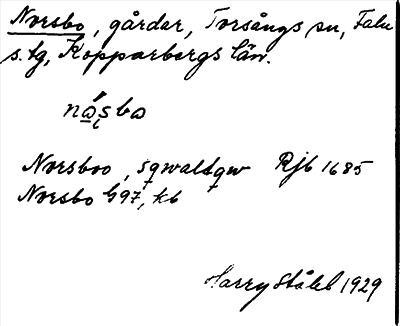 Norsbo, gårdar, Torsångs sn, Falu
s. tg, Kopparbergs län.
nå̱sbω
Norsboo, Rjb 1685
Norsbo G97, kb
Harry Ståhl 1929